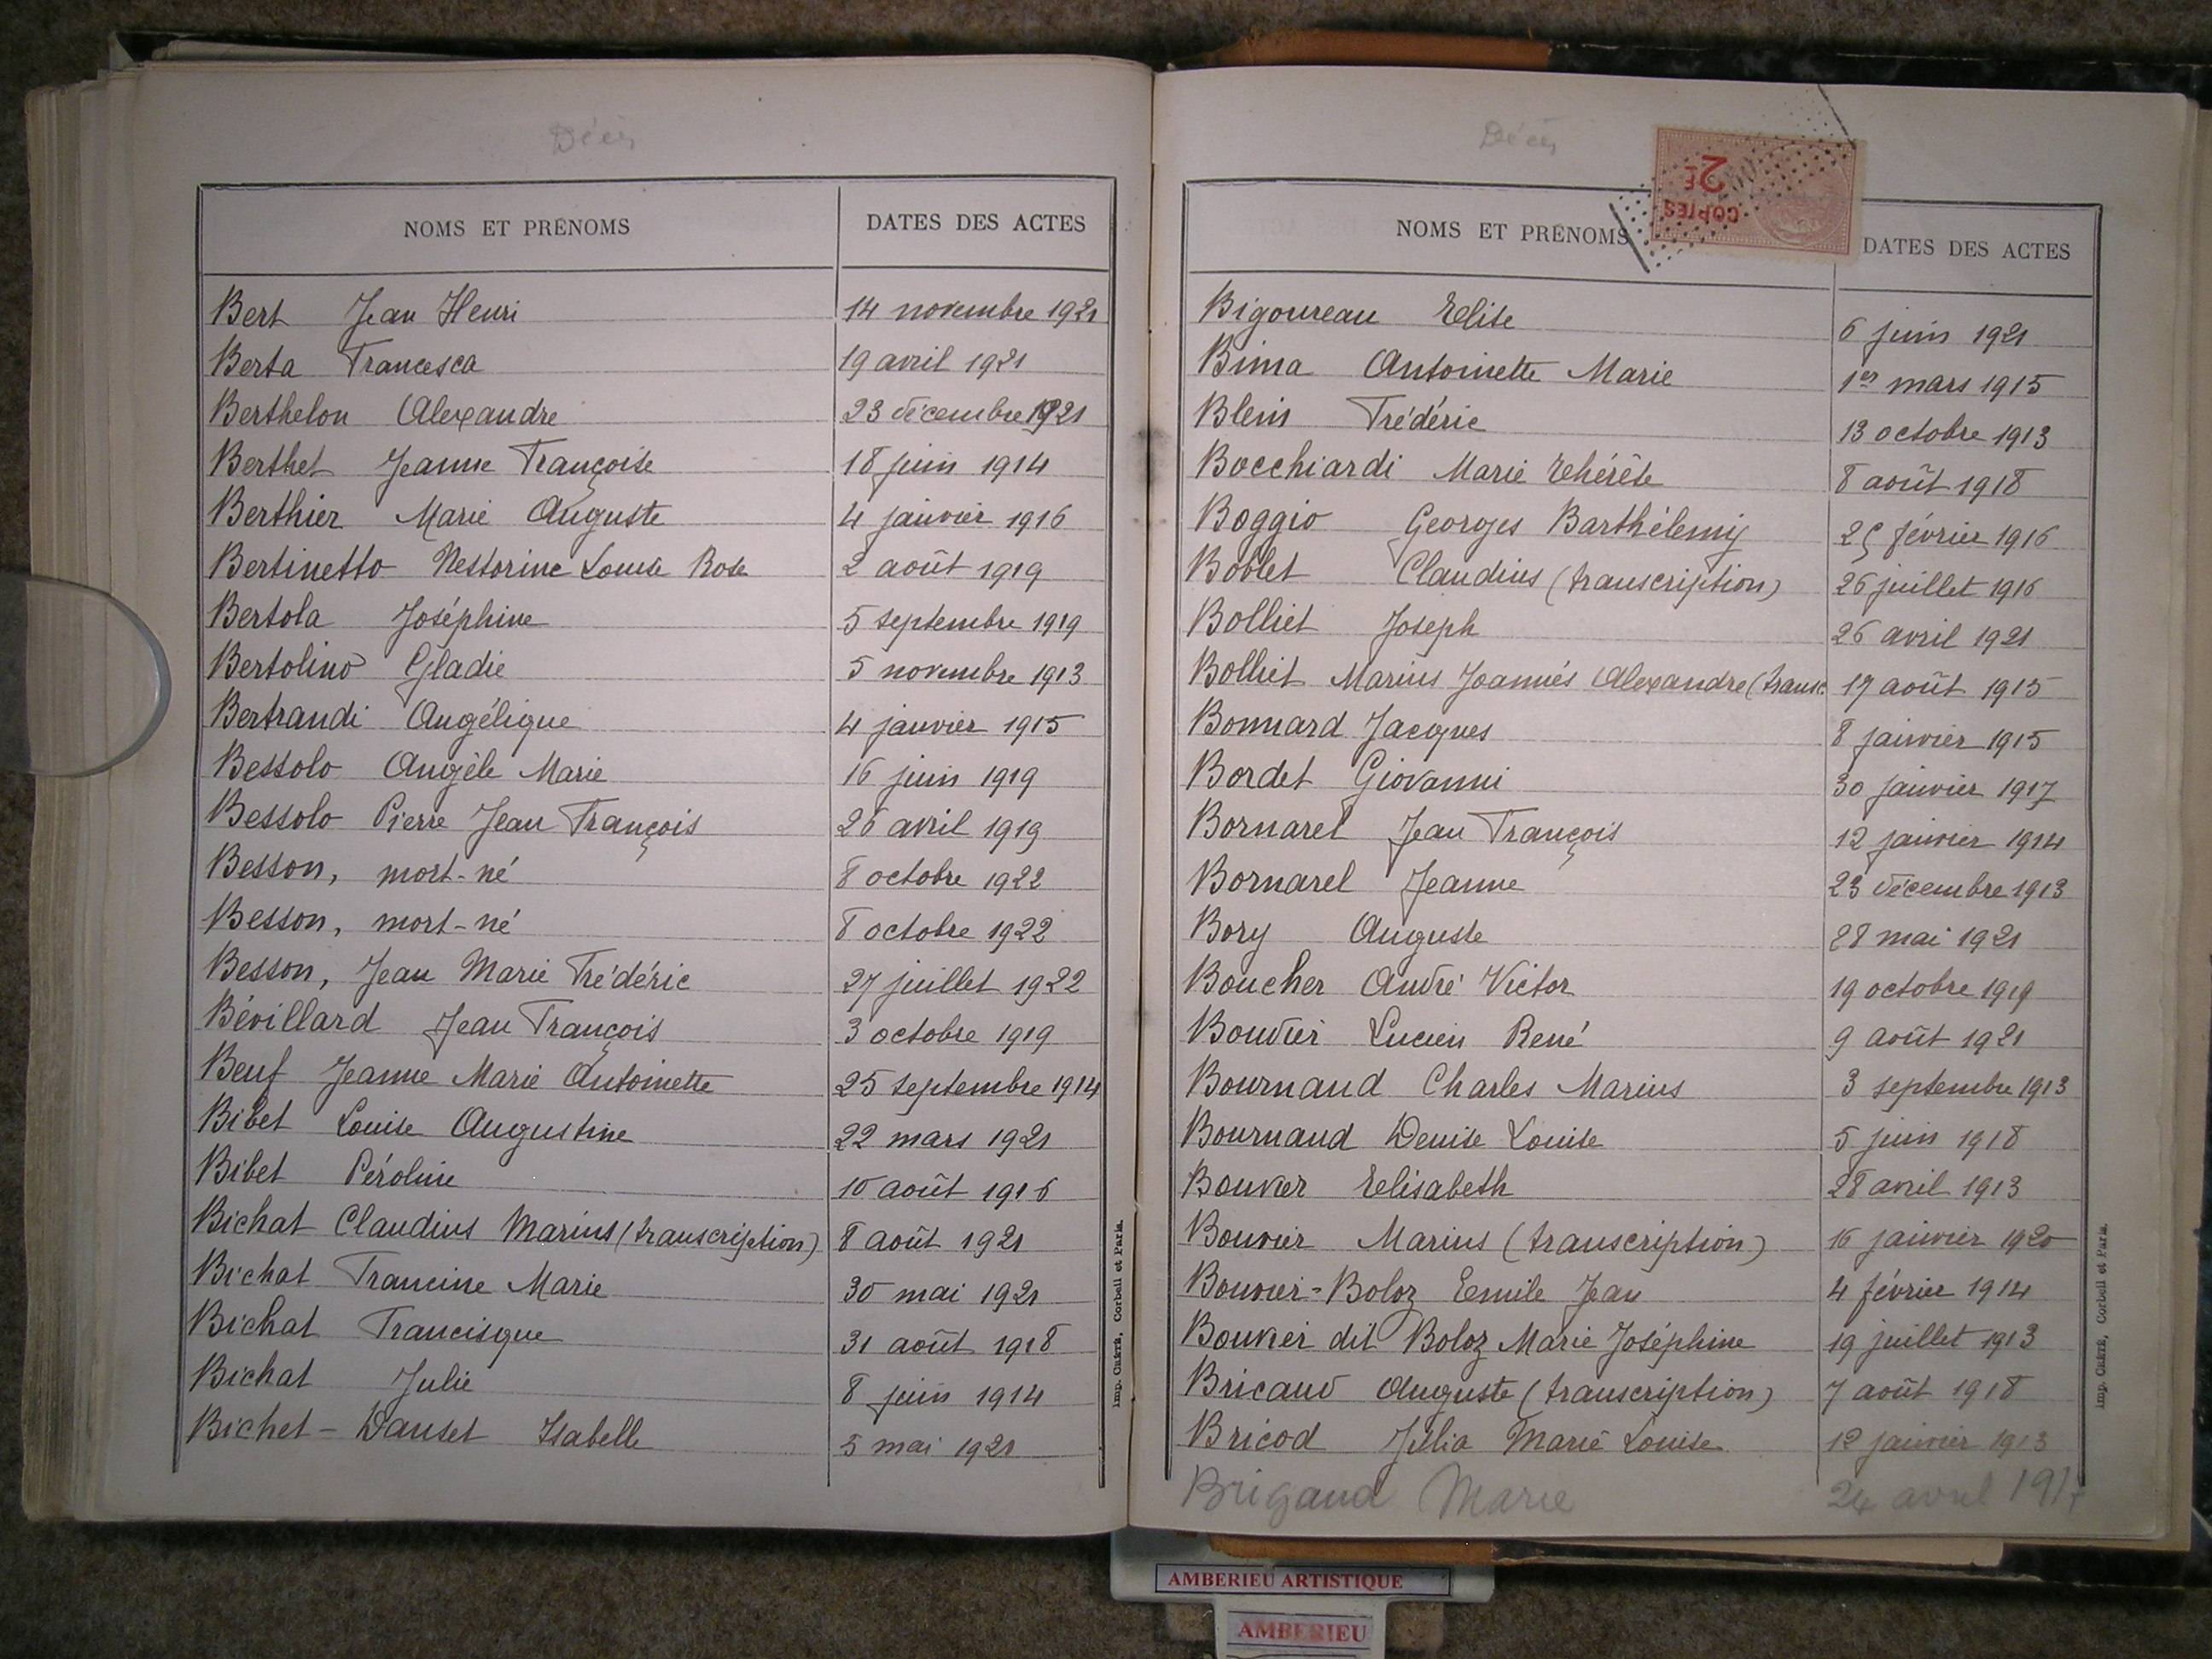 Décès
NOMS ET PRÉNOMS DATES DES ACTES
Bert Jean Henri 14 novembre 1921
Berta Francesca 19 avril 1921
Berthelon Alexandre 23 décembre 1921
Berthet Jeanne Françoise 18 juin 1914
Berthier Marie Auguste 4 janvier 1916
Bertinetto Nestorine Louise Rose 2 août 1919
Bertola Joséphine 5 septembre 1919
Bertolino Gladie 5 novembre 1913
Bertrandi Angélique 4 janvier 1915
Bessolo Angèle Marie 16 juin 1919
Bessolo Pierre Jean François 26 avril 1919
Besson, mort-né 8 octobre 1922
Besson, mort-né 8 octobre 1922
Besson, Jean Marie Frédéric 27 juillet 1922
Bévillard Jean François 3 octobre 1919
Beuf Jeanne Marie Antoinette 25 septembre 1914
Bibet Louise Augustine 22 mars 1921
Bibet Péroline 10 août 1916
Bichat Claudius Marius (transcription) 8 août 1921
Bichat Francine Marie 30 mai 1921
Bichat Francisque 31 août 1918
Bichat Julie 8 juin 1914
Bichet-Danset Isabelle 5 mai 1921
Imp. Crété, Corbeil et Paris.
Décès
COPIES
2F
NOMS ET PRÉNOMS DATES DES ACTES
Bigoureau Elise 6 juin 1921
Bima Antoinette Marie 1er mars 1915
Blein Frédéric 13 octobre 1913
Bocchiardi Marie Thérèse 8 août 1918
Boggio Georges Barthélemy février 1916
Boblet Claudius (transcription) 26 juillet 1916
Bolliet Joseph 26 avril 1921
Bolliet Marius Joannès Alexandre (transc. 17 août 1915
Bonnard Jacques 8 janvier 1915
Bordet Giovanni 30 janvier 1917
Bornarel Jean François 12 janvier 1914
Bornarel Jeanne 23 décembre 1913
Bory Auguste 28 mai 1921
Boucher André Victor 19 octobre 1919
Bouvier Lucien René 9 août 1921
Bournand Charles Marius 3 septembre 1913
Bournand Denise Louise 5 juin 1918
Bouvier Elisabeth 28 avril 1913
Bouvier Marius (transcription) 16 janvier 1920
Bouvier-Boloz Emile Jean 4 février 1914
Bouvier dit Boloz Marie Joséphine 19 juillet 1913
Bricaud Auguste (transcription) 7 août 1918
Bricod Julia Marie Louise 12 janvier 1913
Brigand Marie 24 avril
Imp. Crété, Corbeil et Paris.
AMBERIEU ARTISTIQUE
AMBERIEU